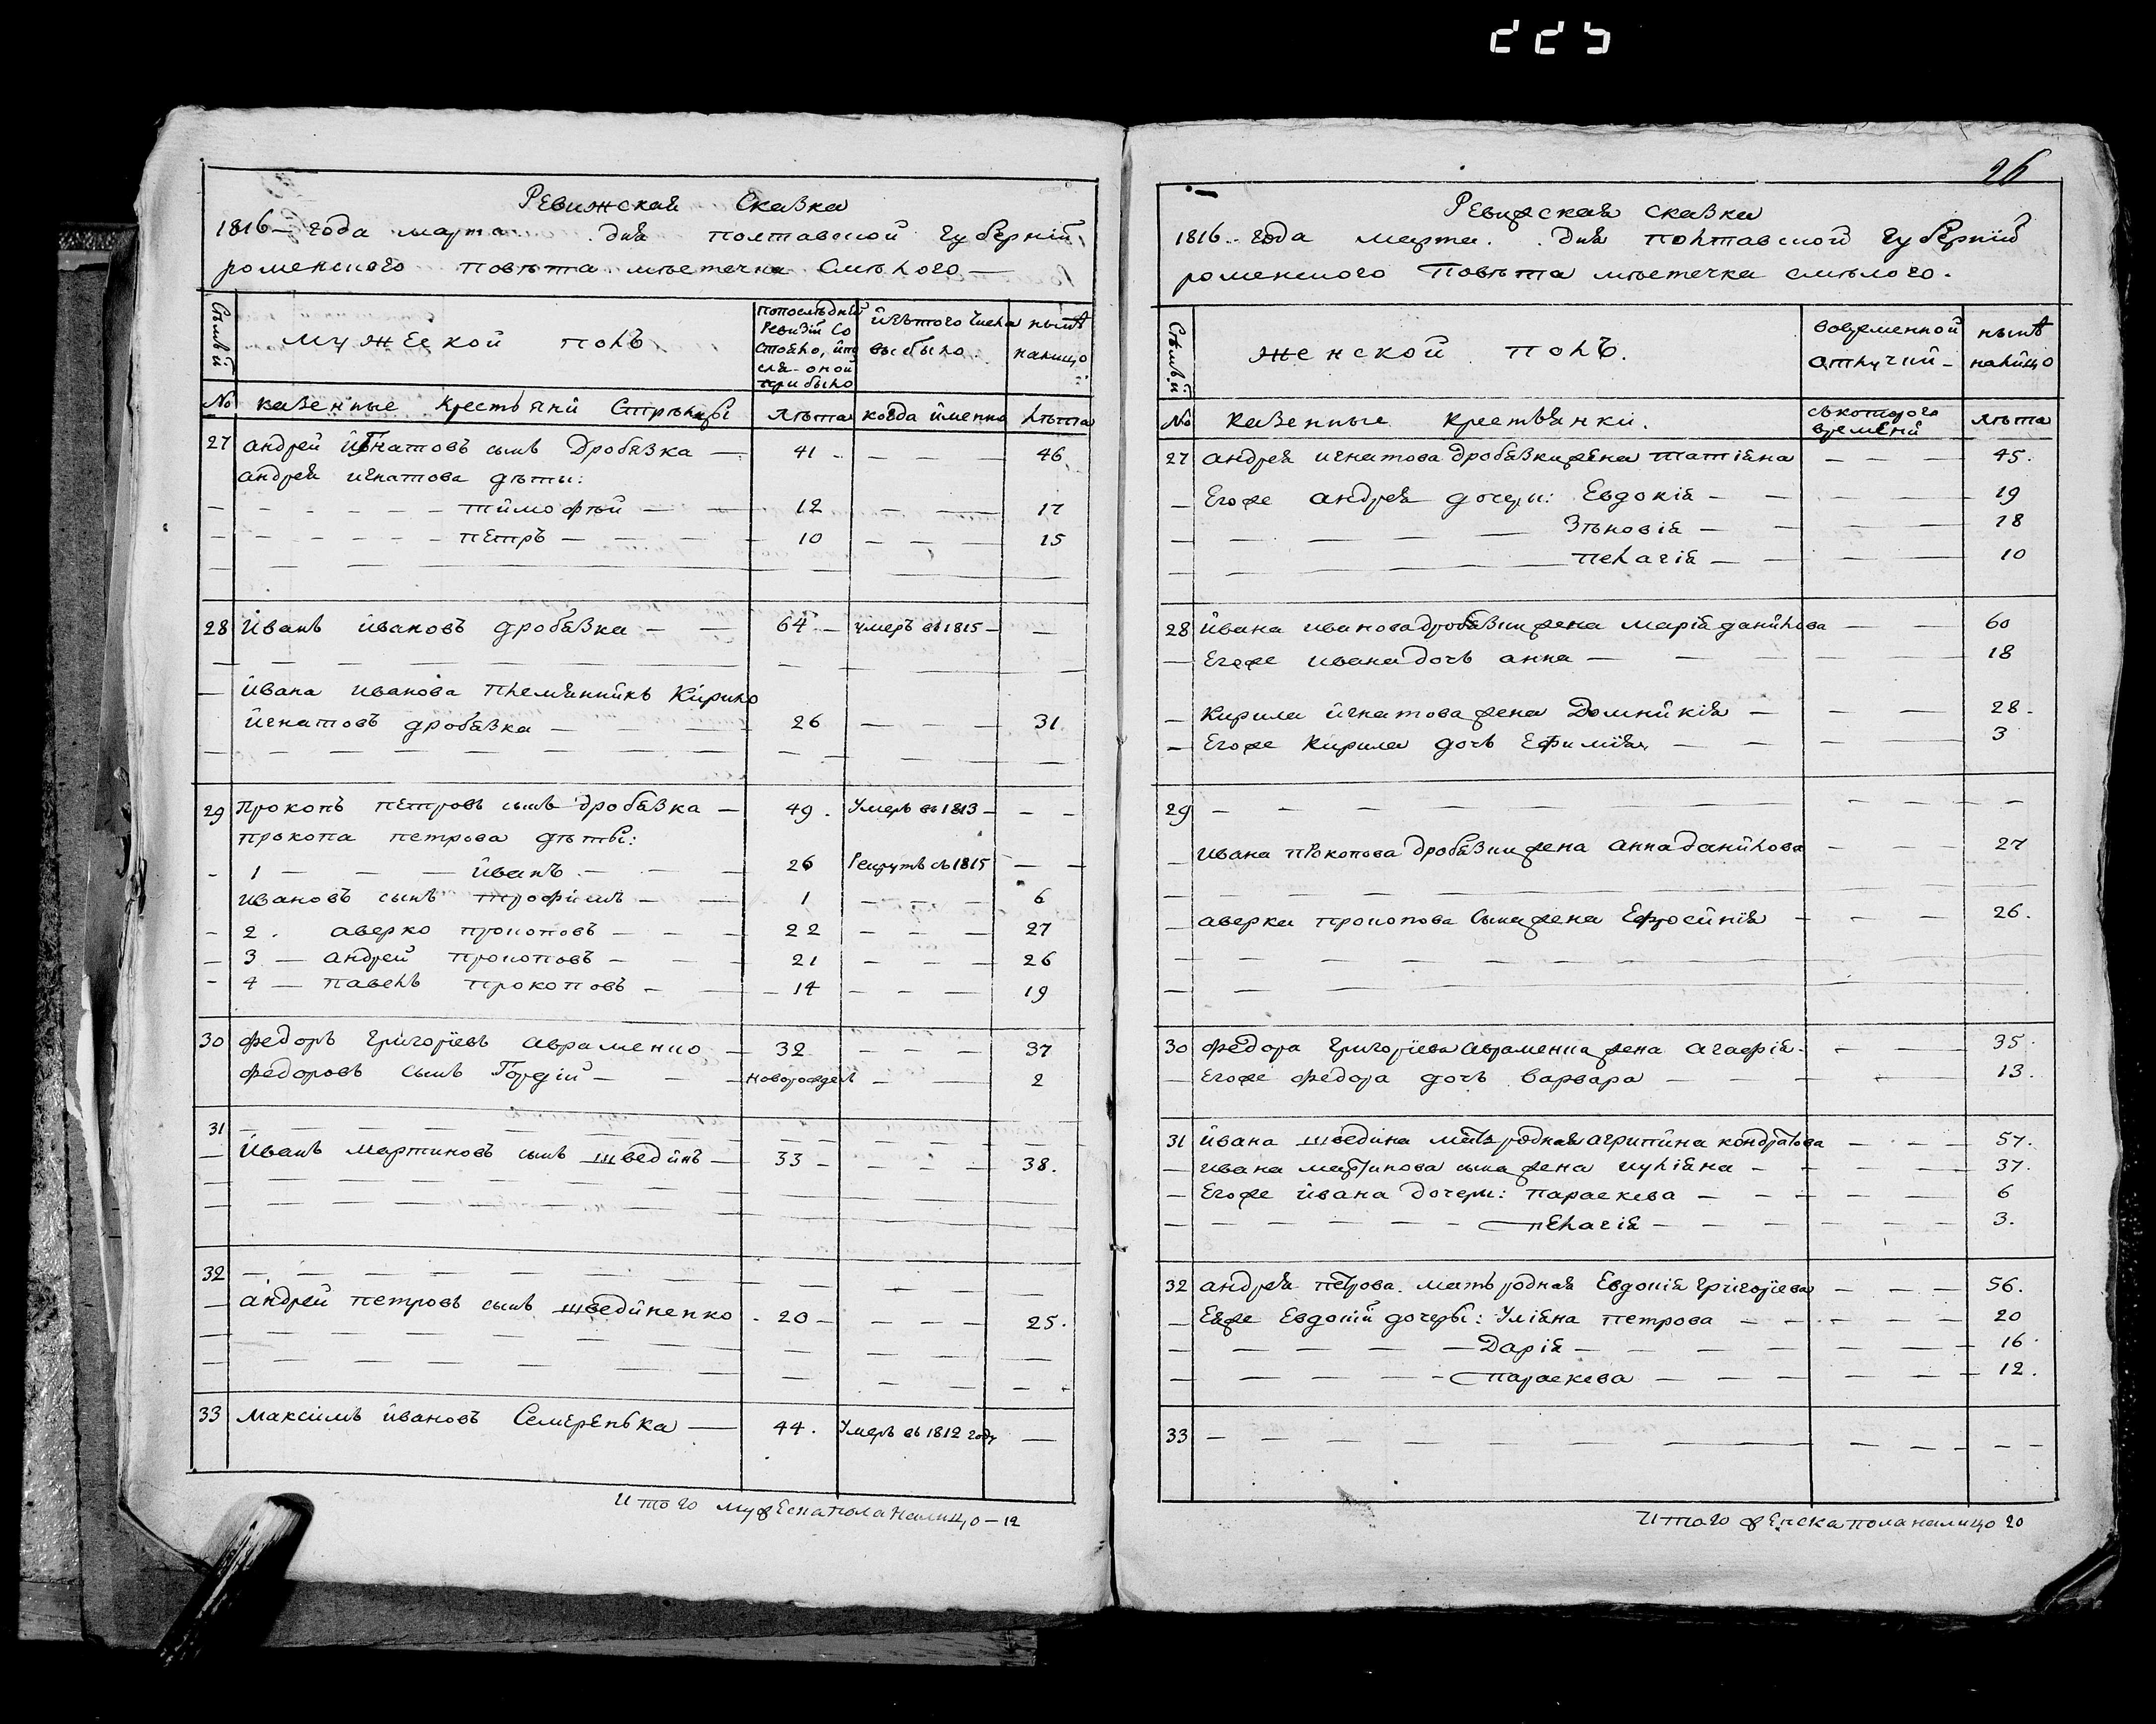 26
Ревижская Сказка
1816 – года марта . . дня полтавской губерній
роменского повѣта мѣстечка Смѣлого —
Сѣмьй
мужеской полъ
попослѣдней Ревизій Состояло, ипосля оной прибыло
ййзъ того числа выбыло.
нынѣ налицо
№ казенные крестьяни Стрѣльцы лѣта когда йменно лѣта
27 андрей йгнатовъ сынъ Дробязка — 41 - — — — 46
андрея игнатова дѣты:
тймофѣй — 12 — — 17
пЕтръ — 10 — — — 15
28 йванъ йвановъ дробязка — — 64 — умеръ въ 1815 — —
— йвана иванова племянникъ Кирило
йгнатовъ дробязка — 26 — — — 31
29 Прокопъ пЕтровъ сынъ дробязка — 49 . Умеръ въ 1813 — — —
прокопа петрова дѣты:
- 1 — — — йванъ . — 26 Рекрутъ съ 1815 — —
йвановъ сынъ трофимъ — 1 — — — 6
- 2 . аверко прокоповъ — — — 22 — — — 27
— 3 — андрей прокоповъ — 21 — — — 26
- 4 — павелъ прокоповъ — 14 — — — 19
30 федоръ григорїевъ авраменко — 32 — — — 37
федоровъ сынъ Гордій — — новорожденъ — — 2
31 — — —
йванъ мартиновъ сынъ шведйнъ — 33 — — — — 38.
32 — — —
андрей петровъ сынъ шведйненко - 20 — — — — 25.
33 максимъ йвановъ СемЕрЕнька — 44 . Умеръ въ 1812 году —
Итого мужеска пола налицо — 12
Ревижская сказка
1816 . года марта . . дня полтавской губЕрній
роменского повѣта мѣстечка смѣлого .
Сѣмьй
женской полъ.
вовременной отлучкй —
нынѣ налйцо
№ казенные крестьянки. съкоторого времЕни лѣта
27 андрея игнатова дробязки жена татіяна — — — 45.
— Егоже андрея дочери: Евдокія — — — 19
Зѣновія — — 18
пелагія — — 10
28 йвана иванова дробязки жена марія данйлова — — 60
— Егоже ивана дочь анна — — — 18
— Кирила йгнатова жена Домнйкія — — — 28 -
— Егоже Кирила дочь Ефимія — — 3
29 — — —
— ивана прокопова дробязки жена анна данйлова — — 27
— аверки прокопова сына жена Ефросйнія — — — 26.
30 федора григорїева авраменка жена агафія - — — 35.
— Егоже федора дочь варвара — — — 13.
31 йвана шведина мать родная агрипйна кондратова — — — 57.
— ивана мартинова сына жена иуліяна — — 37.
— Егоже йвана дочери: параскева — — — 6
— — — — пЕлагія — — — 3.
32 андрея петрова. мать родная Евдокія григорїева — — — 56.
— Еяже Евдокій дочеры: Уліяна петрова — — — 20
— — — Дарія — — — 16
— — — параскева — — — 12.
33 — — —
Итого женска пола налицо 20